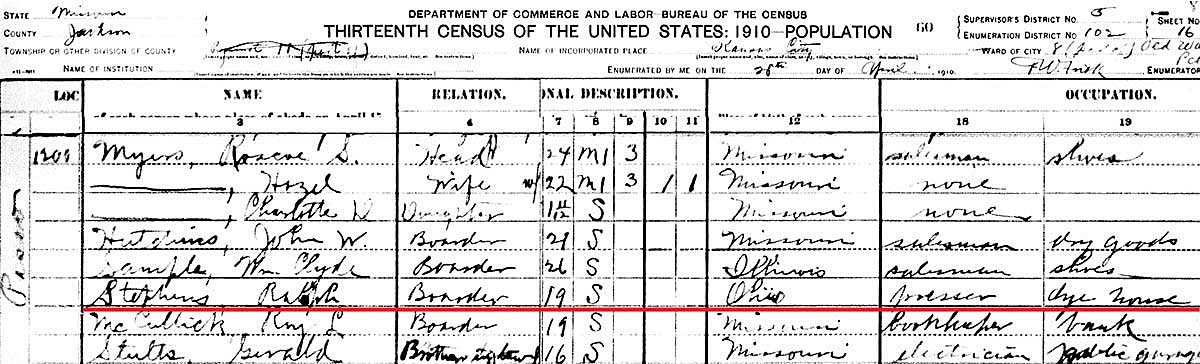 STATE Missouri
DEPARTMENT OF COMMERCE AND LABOR-BUREAU OF THE CENSUS
SUPERVISOR'S DISTRICT NO. 5 SHEET NO.
COUNTY Jackson
THIRTEENTH CENSUS OF THE UNITED STATES: 1910-POPULATION 60
ENUMERATION DISTRICT NO. 102 16
TOWNSHIP OR OTHER DIVISION OF COUNTY
NAME OF INCORPORATED PLACE Kansas City
WARD OF CITY 8
NAME OF INSTITUTION
ENUMERATED BY ME ON THE 28th DAY OF April 1910.
ENUMERATOR
LOC NAME RELATION. ONAL DESCRIPTION. OCCUPATION.
3 4 7 8 9 10 11 12 18 19
1200 Myers, Roscoe S. Head 24 M1 3 Missouri salesman shoes
———, Hazel Wife 22 M1 3 1 1 Missouri none
———, Charlotte D Daughter 1 11/12 S Missouri none
Hutchins, John W. Boarder 21 S Missouri salesman dry goods
Sample, Wm Clyde Boarder 26 S Illinois salesman shoes
Stephens Ralph Boarder 19 S Ohio presser dye house
McCullick Roy L Boarder 19 S Missouri bookkeeper bank
Stults, Gerald Brother in law 16 S Missouri electrician public
Paseo